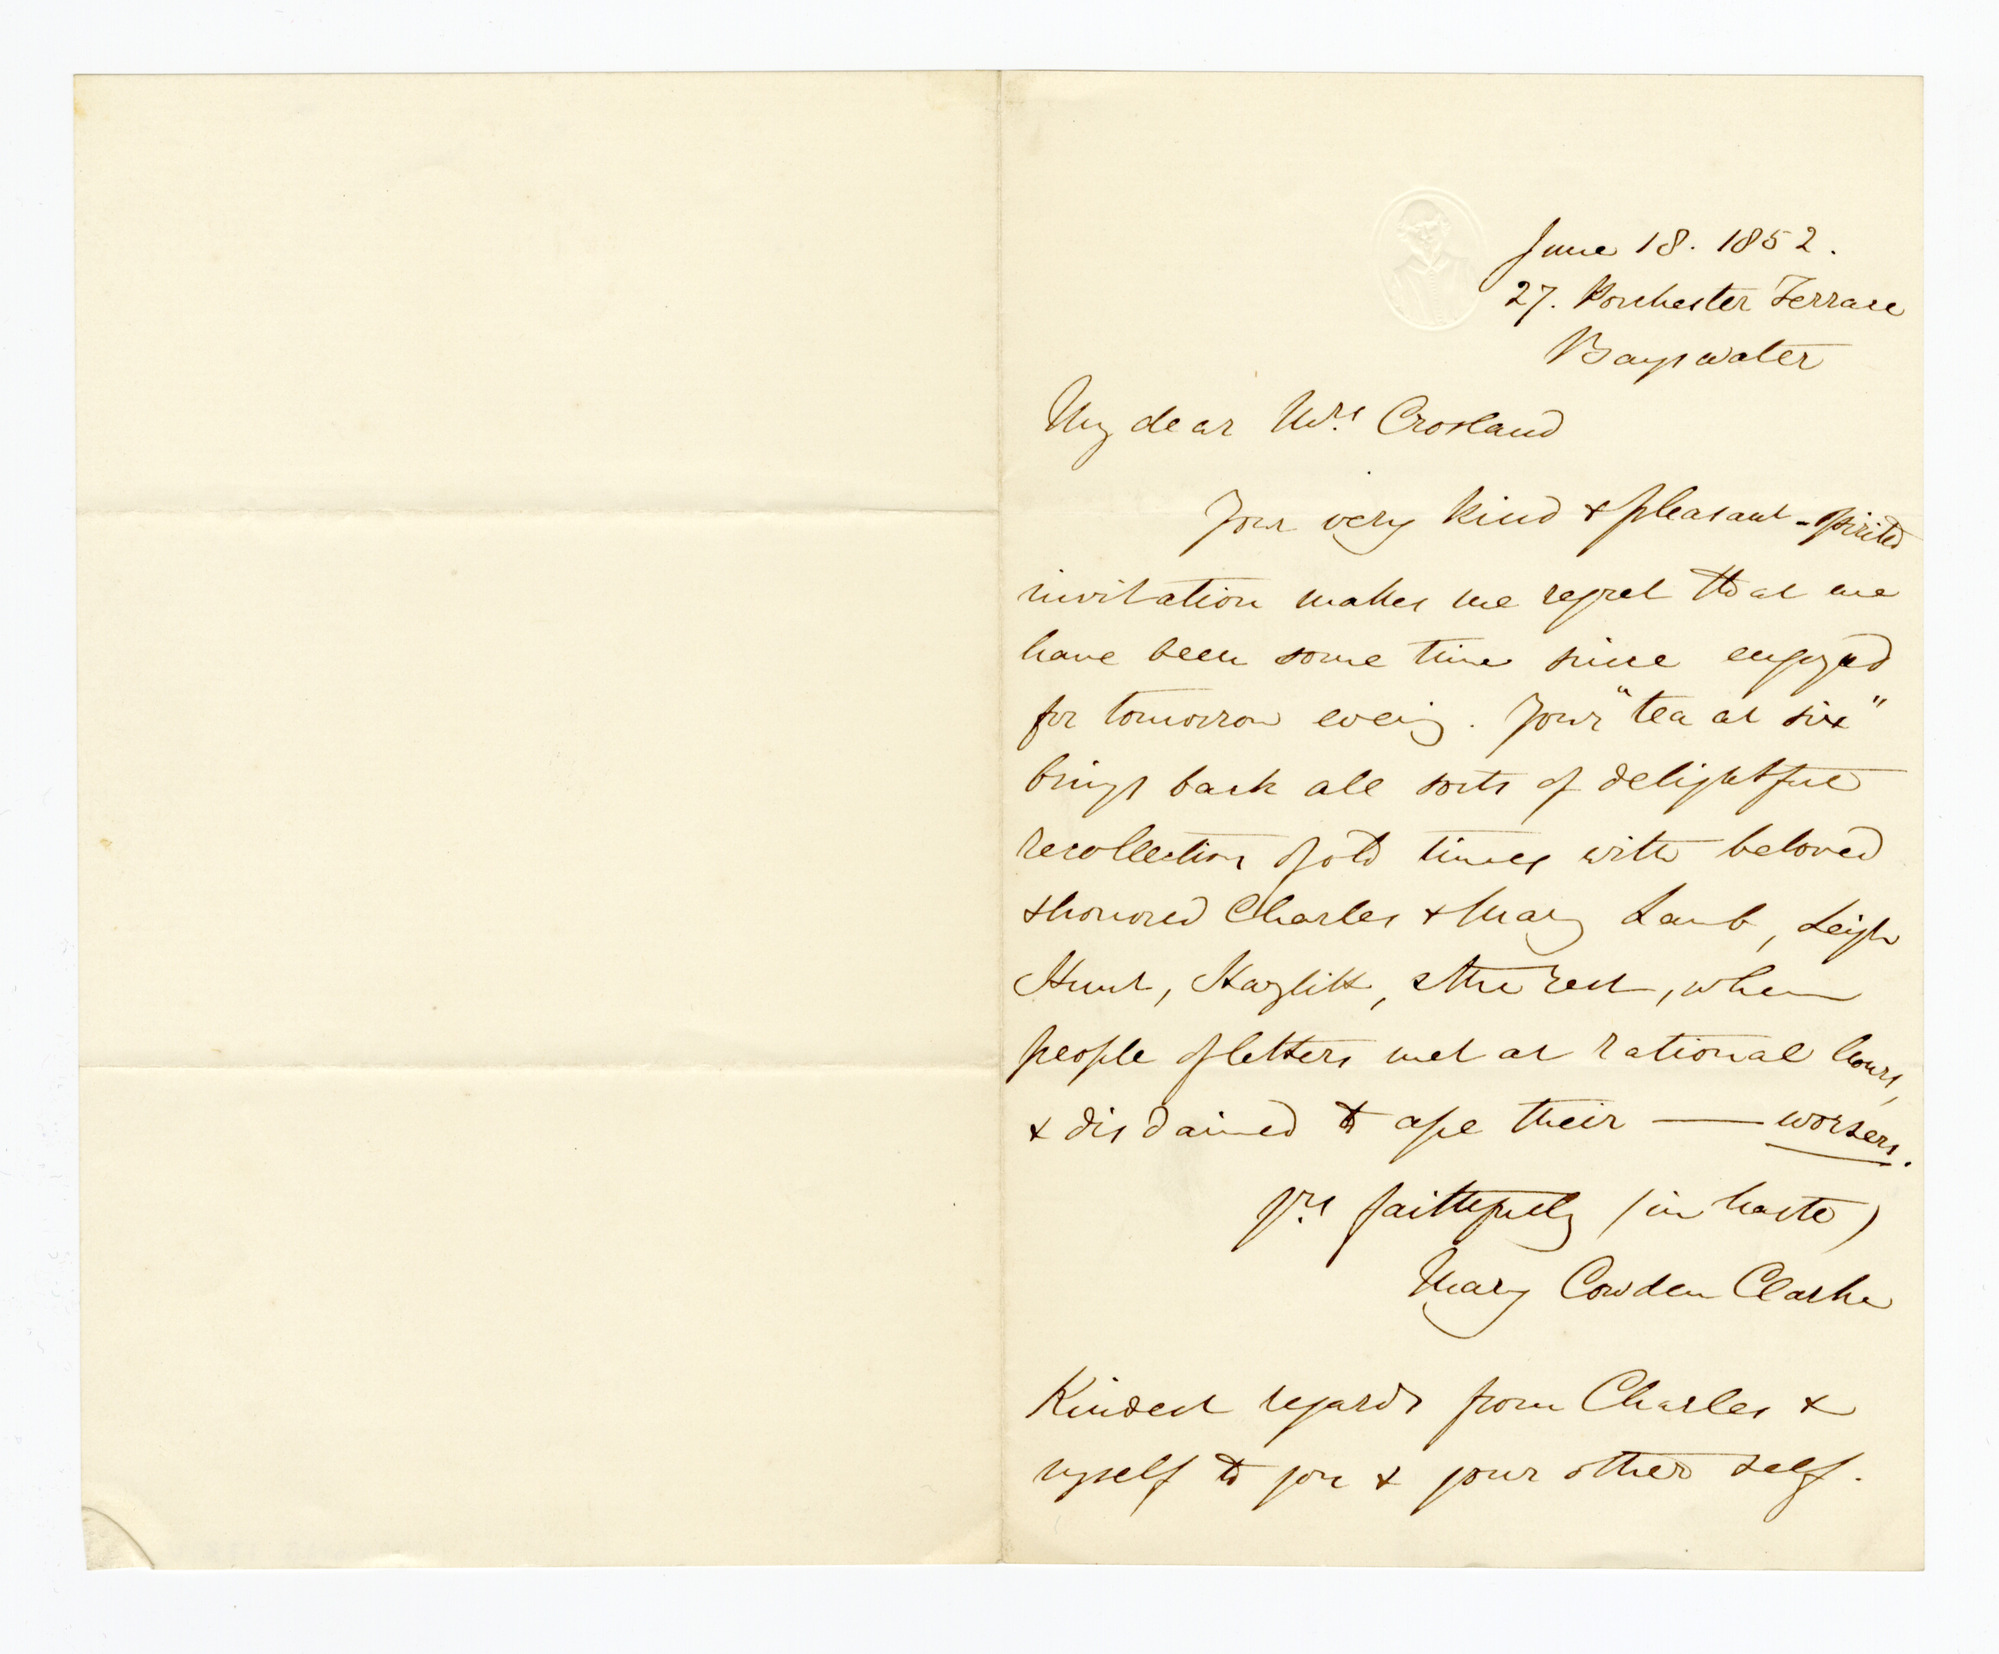 June 18. 1852.
27. Porchester Terrace
Bayswater
My dear Mrs. Crosland
Your very kind & pleasant-spirited
invitation makes me regret that we
have been some time since engaged
for tomorrow eveng. Your "tea at six"
brings back all sorts of delightful
recollections of old times with beloved
& honored Charles & Mary Lamb, Leigh
Hunt, Hazlitt, & the rest, when
people of letters met at rational hours,
& disdained to ape their —— worsers.
Yrs. faithfully (in haste)
Mary Cowden Clarke
Kindest regards from Charles &
myself to you & your other self.